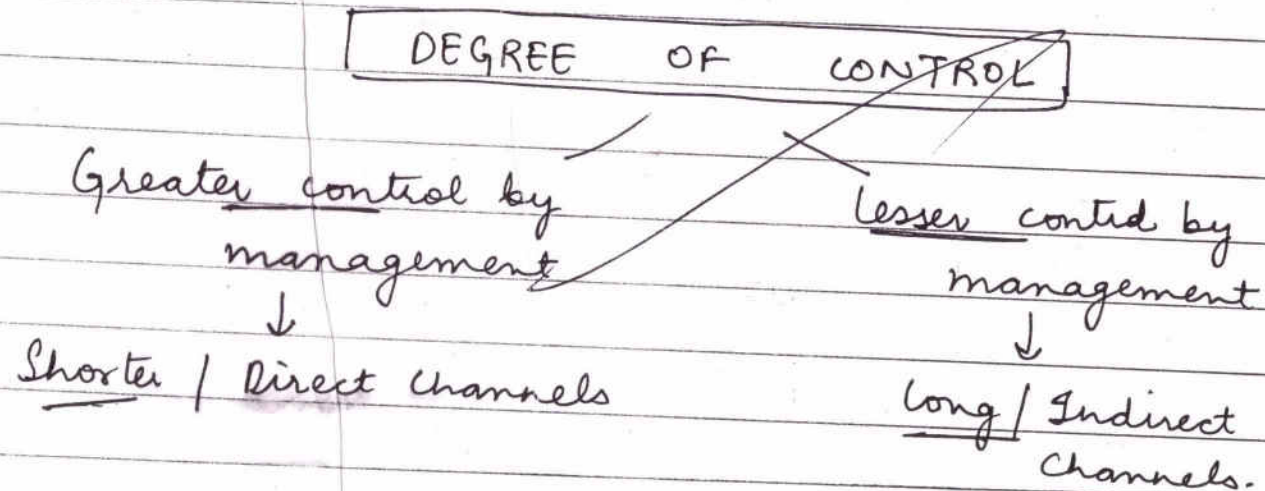 DEGREE OF CONTROL
Greater control by
management
↓
Shorter / Direct Channels
Lesser control by
management
↓
Long / Indirect
Channels.